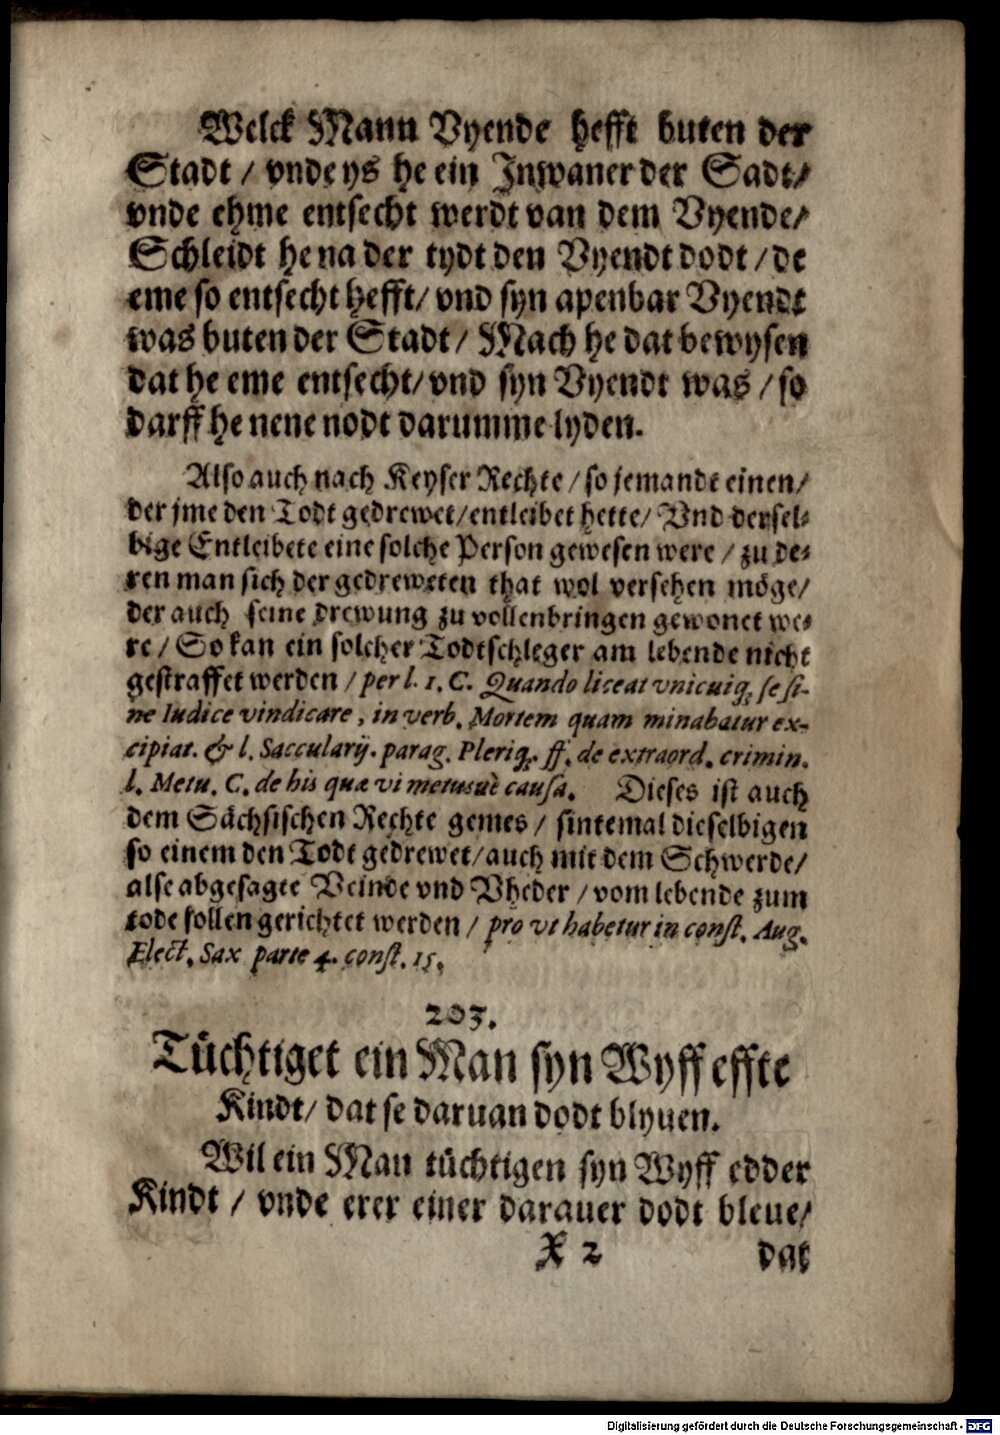 Welck Mann Vyende hefft buten der
Stadt / vnde ys he ein Inwaner der Sadt/
vnde ehme entsecht werdt van dem Vyende/
Schleidt he na der tydt den Vyendt dodt / de
eme so entsecht hefft/ vnd syn apenbar Vyendt
was buten der Stadt / Mach he dat bewysen
dat he eme entsecht/ vnd syn Vyendt was / so
darff he nene nodt darumme lyden.
Also auch nach Keyser Rechte / so jemandt einen/
der jme den Todt gedrewet/ entleibet hette/ Vnd dersel⸗
bige Entleibete eine solche Person gewesen were / zu de⸗
ren man sich der gedreweten that wol versehen möge/
der auch seine drewung zu vollenbringen gewonet we⸗
re / So kan ein solcher Todtschleger am lebende nicht
gestraffet werden / per l. 1. C. Quando liceat vnicuiq; se si-
ne Iudice vindicare, in verb. Mortem quam minabatur ex-
cipiat. & l. Saccularij. parag. Pleriq;. ff. de extraord. crimin.
l. Metu. C. de his quæ vi metusuè causa. Dieses ist auch
dem Sächsischen Rechte gemes / sintemal dieselbigen
so einem den Todt gedrewet/ auch mit dem Schwerde/
alse abgesagte Veinde vnd Vheder / vom lebende zum
tode sollen gerichtet werden / pro vt habetur in const. Aug.
Elect. Sax parte 4. const. 15.
203.
Tüchtiget ein Man syn Wyff effte
Kindt/ dat se daruan dodt blyuen.
Wil ein Man tüchtigen syn Wyff edder
Kindt / vnde erer einer darauer dodt bleue/
X 2 dat
Digitalisierung gefördert durch die Deutsche Forschungsgemeinschaft - DFG